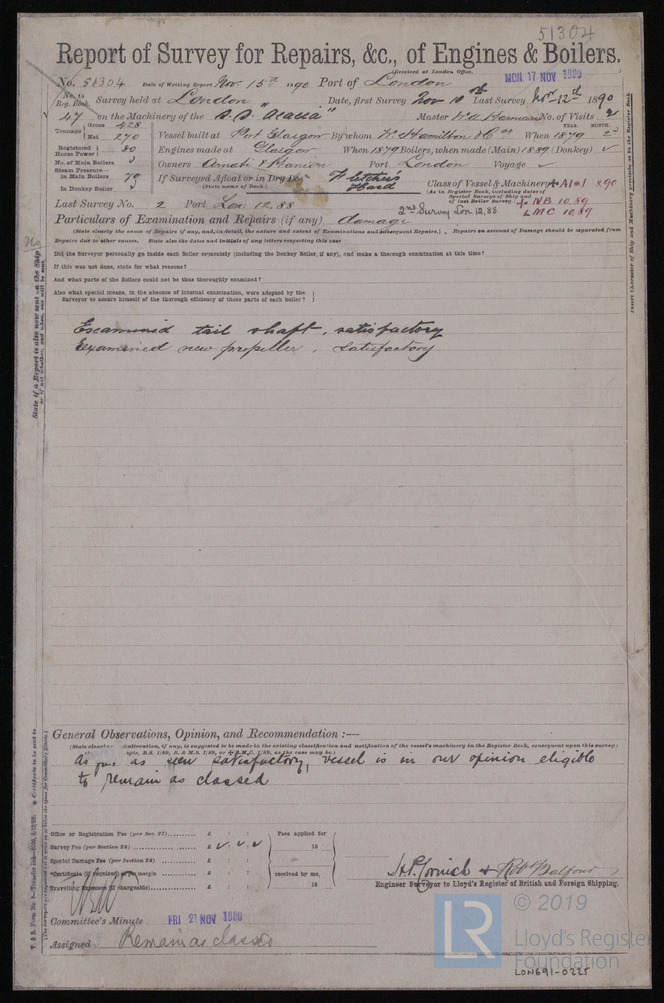 51304
Report of Survey for Repairs, &c., of Engines & Boilers.
(Received at London Office,
MON. 17 NOV. 1890
No. 51304 Date of Writing Report Nov. 15th 1890 Port of London
No. in Reg. Book Survey held at London Date, first Survey Nov 10th Last Survey Nov 12th 1890
47 on the Machinery of the S.S. "Acacia" Master No. of Visits 2
Tonnage Gross 428 Net 270 Vessel built at Port Glasgow By whom W. Hamilton & Co When 1879 YEAR. MONTH. 2
Registered Horse Power 80 Engines made at Glasgow When 1879 Boilers, when made (Main) 1889 (Donkey) ✓
No. of Main Boilers Owners Port London Voyage ✓
Steam Pressure in Main Boilers 75 If Surveyed Afloat or in Dry Dock Fletcher's Yard
(State name of Dock.)
in Donkey Boiler
Class of Vessel & Machinery A1 8.90
(As in Register Book, including dates of Special Surveys of Ship and of last Boiler Survey) NB 10.89
LMC 10.89
Last Survey No. 2 Port Lon. 12,88 2nd Survey Lon. 12,88
Particulars of Examination and Repairs (if any) damage
(State clearly the cause of Repairs if any, and, in detail, the nature and extent of Examinations and subsequent Repairs.) Repairs on account of Damage should be separated from
Repairs due to other causes. State also the dates and initials of any letters respecting this case
Did the Surveyor personally go inside each Boiler separately (including the Donkey Boiler, if any), and make a thorough examination at this time?
If this was not done, state for what reasons?
And what parts of the Boilers could not be thus thoroughly examined?
Also what special means, in the absence of internal examination, were adopted by the
Surveyor to assure himself of the thorough efficiency of those parts of each boiler?
Examined tail shaft, satisfactory
Examined new propeller, satisfactory
State if a Report is also now sent on the Ship
or if not whether, and when, one will be sent.
No
Insert Character of Ship and Machinery precisely as in the Register Book
General Observations, Opinion, and Recommendation :—
As far as seen satisfactory, vessel is in our opinion eligible
to remain as classed
Office or Registration Fee (per Sec. 27) £ : : Fees applied for
Survey Fee (per Section 28) £ ✓ ✓ ✓ 18
Special Damage Fee (per Section 28) £ : :
*Certificate (if required) as per margin £ : : received by me,
Travelling Expenses (if chargeable) £ : : 18
H.P. Cornish & Robt Balfour
Engineer Surveyor to Lloyd's Register of British and Foreign Shipping.
Committee's Minute FRI. 21 NOV. 1890
Assigned Remain as classed
© 2019
LR
Lloyd's Register
Foundation
LON691-0225